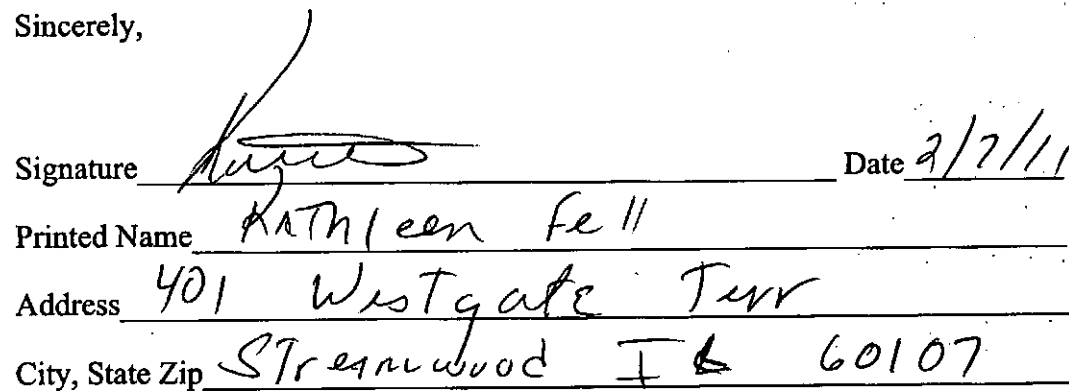 Sincerely,
Signature Date 2/7/11
Printed Name Kathleen Fell
Address 401 Westgate Terr
City, State Zip Streamwood IL 60107